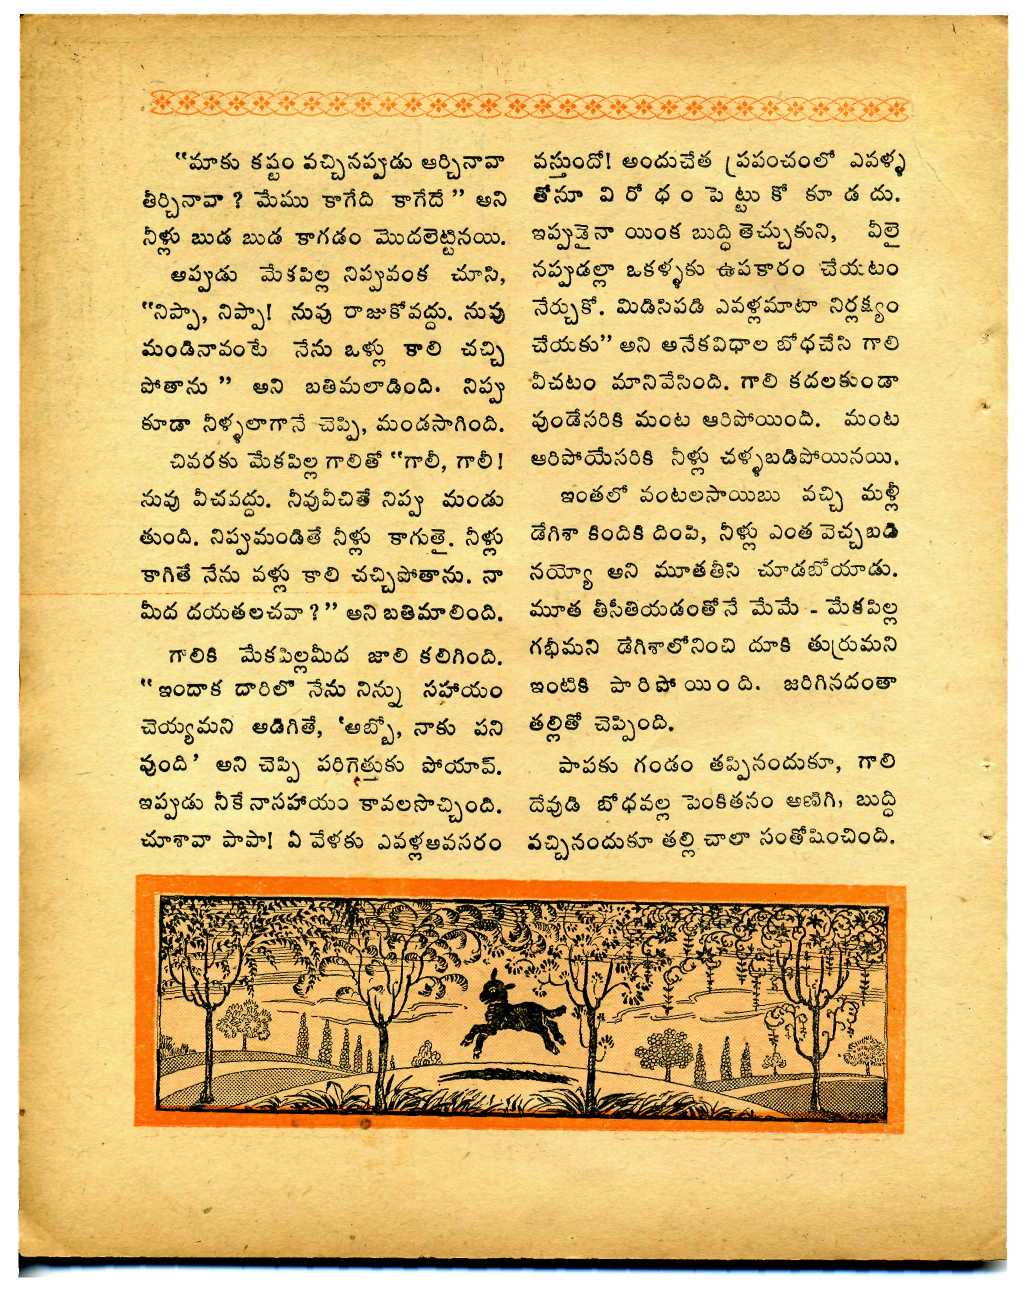 “మాకు కష్టం వచ్చినప్పుడు ఆర్చినావా
తీర్చినావా ? మేము కాగేది కాగేదే ” అని
నీళ్లు బుడ బుడ కాగడం మొదలెట్టినయి.
అప్పుడు మేకపిల్ల నిప్పువంక చూసి,
“నిప్పా, నిప్పా! నువు రాజుకోవద్దు. నువు
మండినావంటే నేను ఒళ్లు కాలి చచ్చి
పోతాను ” అని బతిమలాడింది. నిప్పు
కూడా నీళ్ళలాగానే చెప్పి, మండసాగింది.
చివరకు మేకపిల్ల గాలితో “గాలీ, గాలీ!
నువు వీచవద్దు. నీవువీచితే నిప్పు మండు
తుంది. నిప్పుమండితే నీళ్లు కాగుతై. నీళ్లు
కాగితే నేను వళ్లు కాలి చచ్చిపోతాను. నా
మీద దయతలచవా ? ” అని బతిమాలింది.
గాలికి మేకపిల్లమీద జాలి కలిగింది.
“ ఇందాక దారిలో నేను నిన్ను సహాయం
చెయ్యమని అడిగితే, ‘అబ్బో, నాకు పని
వుంది’ అని చెప్పి పరిగెత్తుకు పోయావ్.
ఇప్పుడు నీకే నాసహాయం కావలసొచ్చింది.
చూశావా పాపా! ఏ వేళకు ఎవళ్లఅవసరం
వస్తుందో! అందుచేత ప్రపంచంలో ఎవళ్ళ
తోనూ వి రో ధ ం పె ట్టు కో కూ డ దు.
ఇప్పుడైనా యింక బుద్ధి తెచ్చుకుని, వీలై
నప్పుడల్లా ఒకళ్ళకు ఉపకారం చేయటం
నేర్చుకో. మిడిసిపడి ఎవళ్లమాటా నిర్లక్ష్యం
చేయకు” అని అనేకవిధాల బోధచేసి గాలి
వీచటం మానివేసింది. గాలి కదలకుండా
వుండేసరికి మంట ఆరిపోయింది. మంట
ఆరిపోయేసరికి నీళ్లు చళ్ళబడిపోయినయి.
ఇంతలో వంటలసాయిబు వచ్చి మళ్లీ
డేగిశా కిందికి దింపి, నీళ్లు ఎంత వెచ్చబడి
నయ్యో అని మూతతీసి చూడబోయాడు.
మూత తీసీతియడంతోనే మేమే - మేకపిల్ల
గభీమని డేగిశాలోనించి దూకి తుర్రుమని
ఇంటికి పా రి పో యిం ది. జరిగినదంతా
తల్లితో చెప్పింది.
పాపకు గండం తప్పినందుకూ, గాలి
దేవుడి బోధవల్ల పెంకితనం అణిగి, బుద్ధి
వచ్చినందుకూ తల్లి చాలా సంతోషించింది.